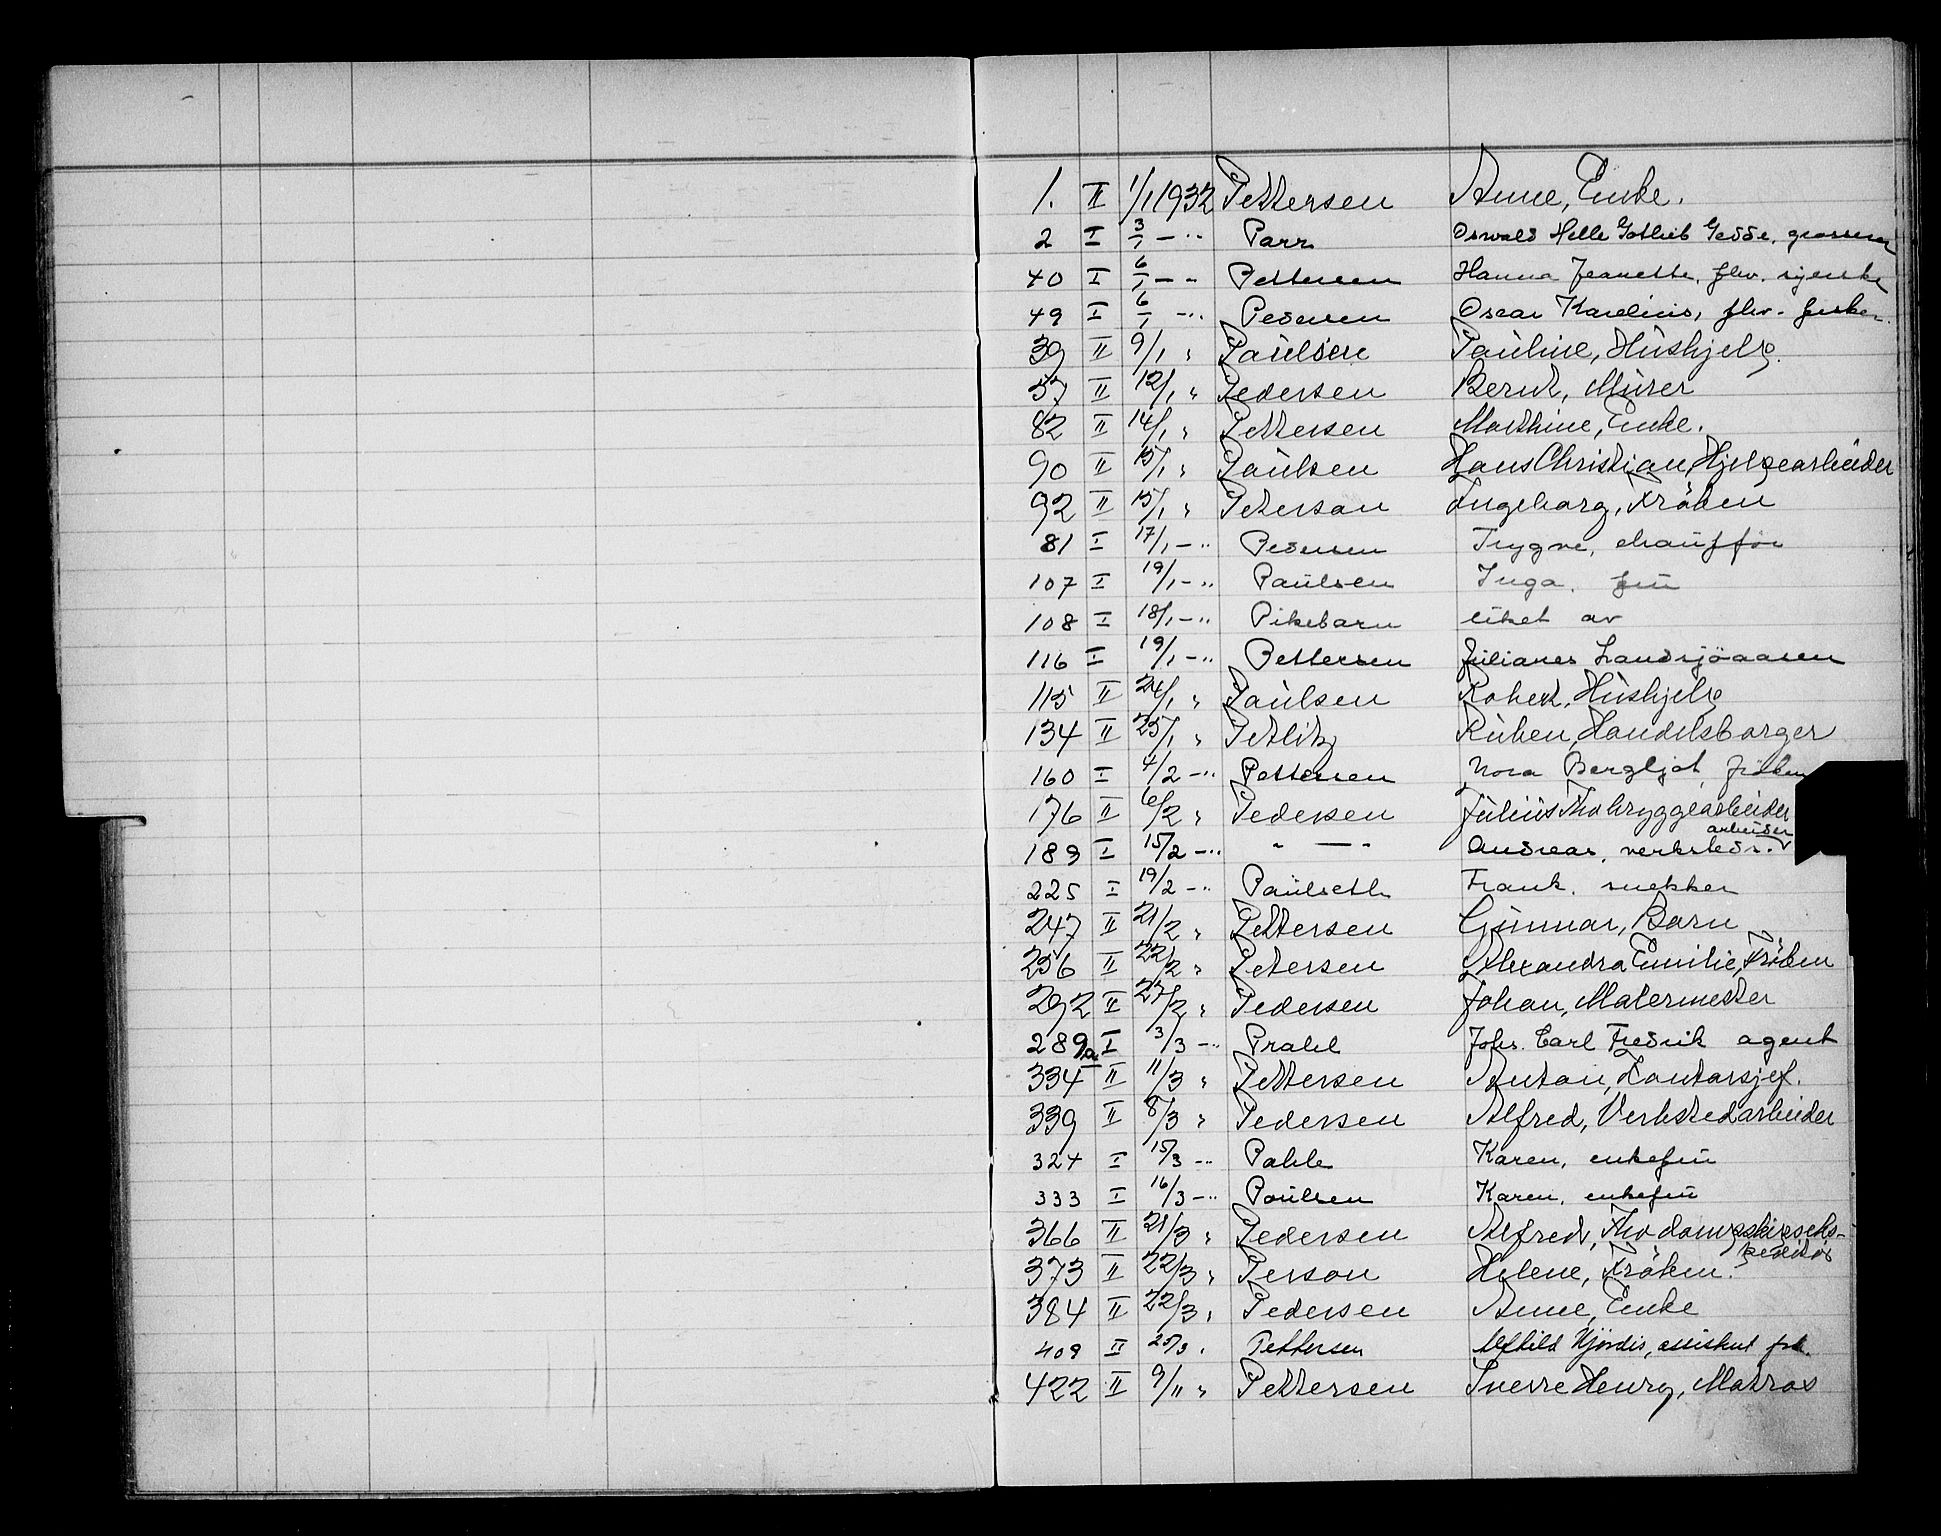 1. II 1/1 1932 Pettersen Anne, Enke.
2 I 3/1 — " Parr Oswald Helle Gotlieb Gedde, grosserer
40 I 6/1 — " Pettersen Hanna Jeanette, fhv. syerske
49 I 6/1 — " Pedersen Oscar Karelius, fhv. fisker.
39 II 9/1 " Paulsen Pauline, Hushjelp.
57 II 12/1 " Pedersen Bernt, Murer
82 II 14/1 " Pettersen Mathine, Enke.
90 II 15/1 " Paulsen Hans Christian, Hjelpearbeider
92 II 15/1 " Peterson Ingeborg, Frøken
81 I 17/1 — " Pedersen Trygve, chauffør
107 I 19/1 — " Paulsen Inga, fru
108 I 18/1 — " Pikebarn liket av
116 I 19/1 — " Pettersen Julianes Landsjøaasen
115 II 24/1 " Paulsen Robert, Hushjelp
134 II 25/1 " Petlitz Ruben, Handelsborger
160 I 4/2 — " Pettersen Nora Bergljot, frøken
176 II 6/2 " Pedersen Julius Fhv bryggearbeider
189 I 15/2 — " " — " Andreas, verksteds. arbeider
225 I 19/2 — " Paulseth Frank, snekker
247 II 21/2 " Pettersen Gunnar, Barn
256 II 22/2 " Petersen Alexandra Emilie, Frøken
292 II 27/2 " Pedersen Johan, Malermester
289a I 3/3 — " Prahl Johs. Carl Fredrik agent
334 II 11/3 " Pettersen Anton, Kontorsjef.
339 II 8/3 " Pedersen Alfred, Verkstedarbeider
324 I 15/3 — " Pahle Karen, enkefru
333 I 16/3 — " Poulsen Karen, enkefru
366 II 21/3 " Pedersen Alfred, Fhv dampskipseks-
peditør
373 II 22/3 " Person Helene, Frøken.
384 II 22/3 " Pedersen Anne, Enke
409 II 25/3 " Pettersen Alfhild Hjørdis, assistent frk.
422 II 9/11 " Pettersen Sverre Henry, Matros